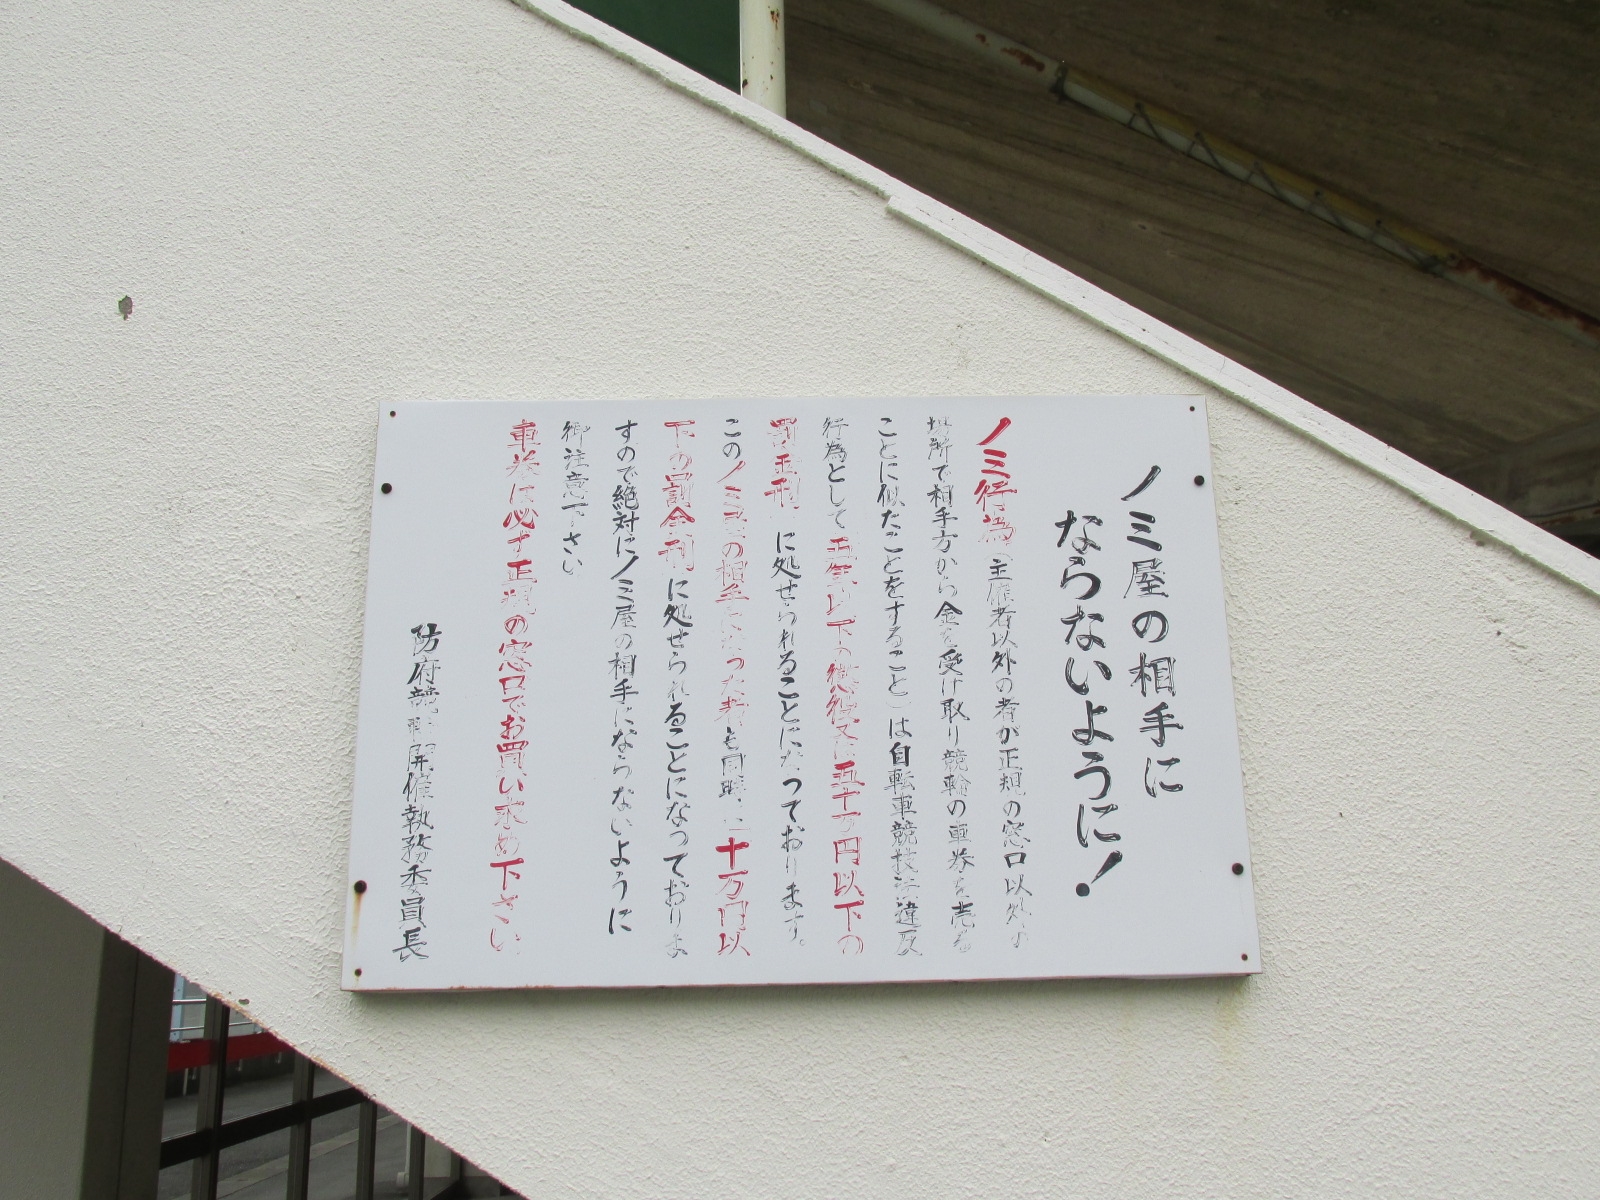 ノミ屋の相手に
ならないように!
ノミ行為(主催者以外の者が正規の窓口以外の
場所で相手方から金を受け取り競輪の車券を売る
ことに似たことをすること)は自転車競技法違反
行為として五年以下の懲役又は五百万円以下の
罰金刑に処せられることになっております。
このノミ屋の相手になった者も同時に十万円以
下の罰金刑に処せられることになっておりま
すので絶対にノミ屋の相手にならないように
御注意下さい
車券は必ず正規の窓口でお買い求め下さい
防府競輪開催執務委員長